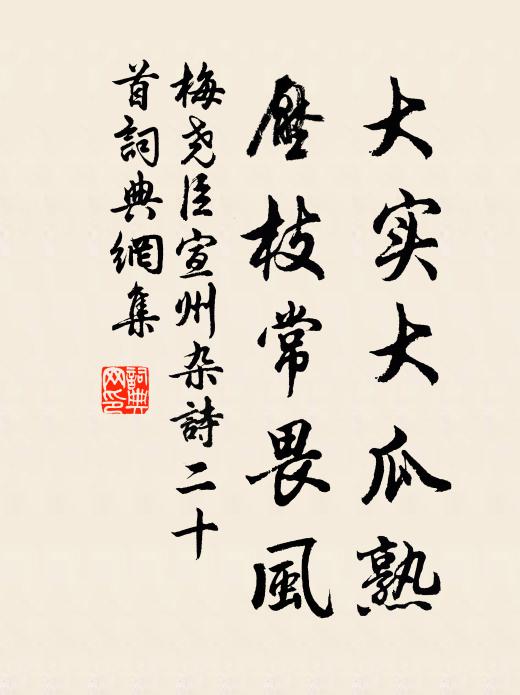 大实大瓜熟
壓枝常畏風
梅尧臣宣州杂詩二十
首詞典網集
詞典
网印